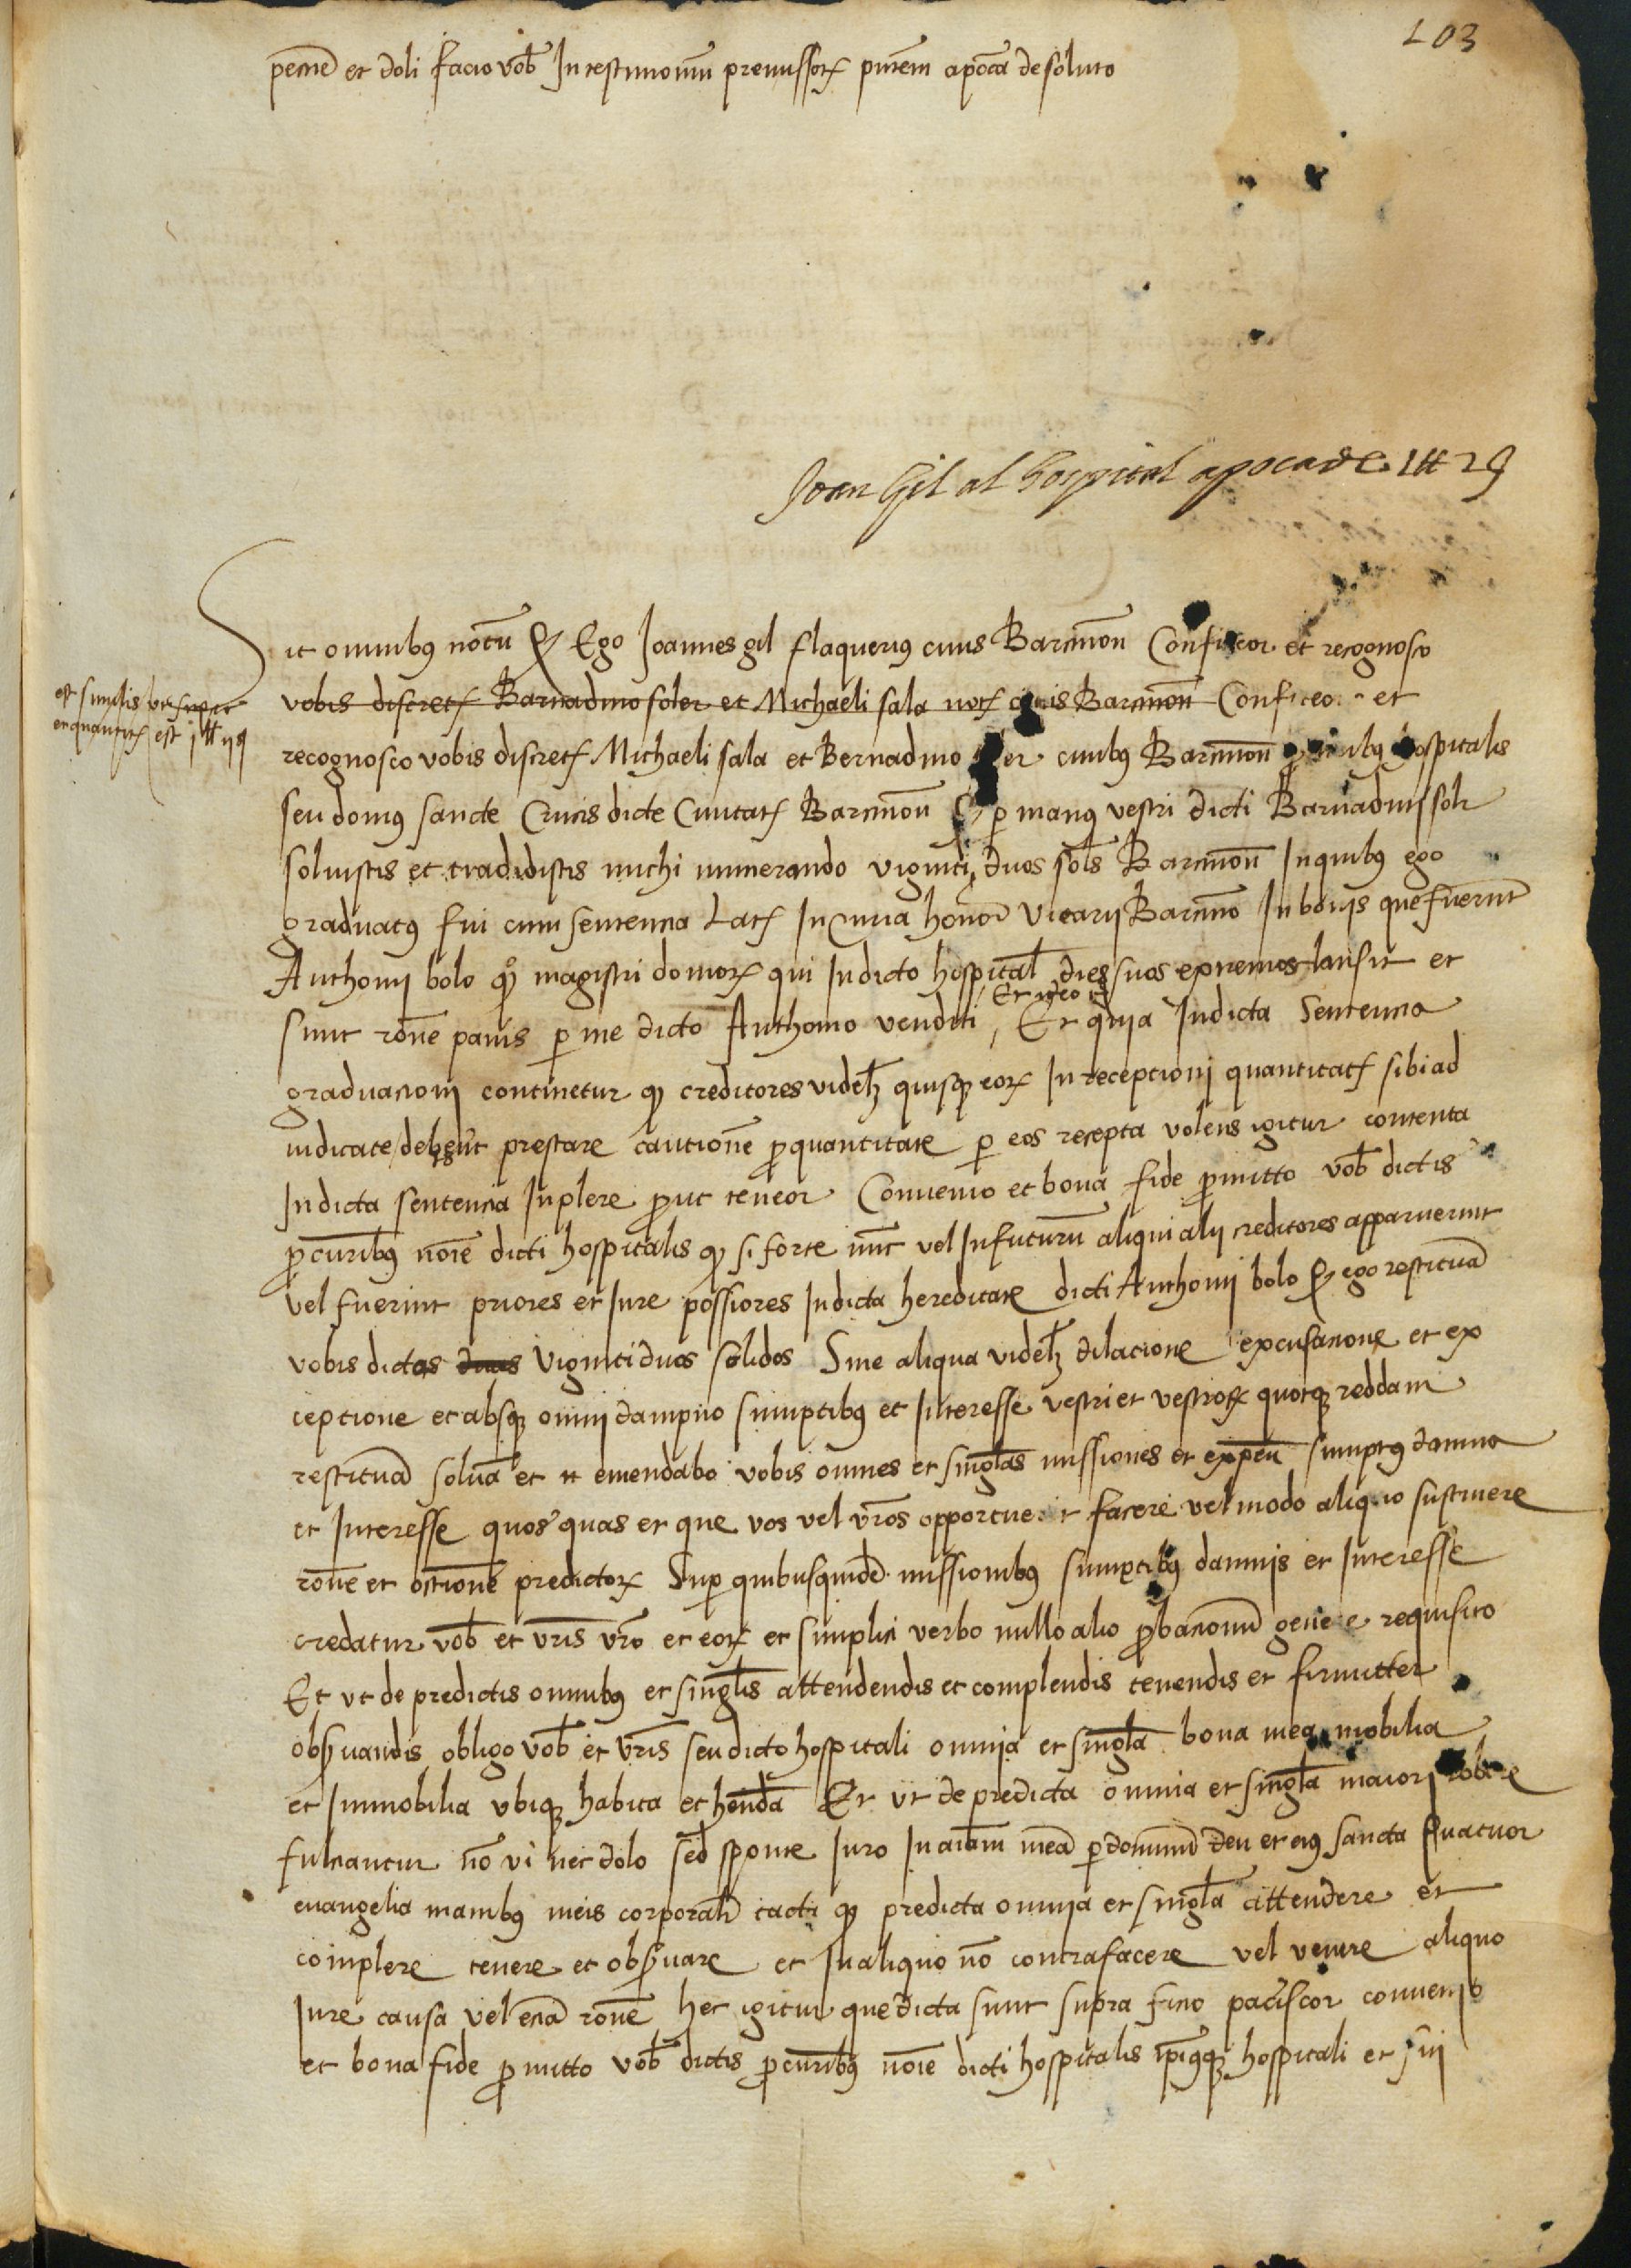 103
pecunie et doli facio vob In testimonium premissorum presentem apocam de soluto
Joan Gil al hospital apoca de 1 ₶ 2 s
Sit omnibus notu quod Ego Joannes gil flaquerius civis Barcinon Confiteor et recognosco
est similis ut supra
et quantitas est j ₶ ij s
vobis discretis Barnadino soler et Michaeli sala not civis Barcinon Confiteor et
recognosco vobis discretis Michaeli sala et Bernadino er civibus Barcinon hospitalis
seu domus sancte Crucis dicte Civitatis Barcinon quod per manus vestri dicti Barnadini solr
solvistis et tradidistis michi numerando viginti duos sols Barcinon In quibus ego
graduatus fui cum sentencia Lata In Curia honor Vicarij Barcino In bonis que fuerunt
Anthonij bolo quo magistri domorum qui In dicto hospital dies suos extremos clausit et
Et ideo
sunt rone panis per me dicto Anthonio venditi, Et quia In dicta Sentencia
graduacionis continetur quod creditores videlz quisque eorum In recepcionj quantitatis sibi ad
iudicate debent prestare cautione pro quantitate per eos recepta volens igitur contenta
In dicta sentencia Inplere prout teneor Convenio et bona fide promitto vob dictis
procuribus noie dicti hospitalis quod si forte nunc vel In futurum aliqui alij creditores apparuerint
vel fuerint priores et Jure possiores In dicta hereditate dicti Anthonij bolo quod ego restituam
vobis dictos duos Viginti duos solidos Sine aliqua videlz dilacione excusacione et ex
cepcione et absque omnj dampno sumptibus et Interesse vestri et vestrorum quotque reddam
restituam solvam et tt emendabo vobis omnes et singlas missiones et expen sumptus damna
et Interesse quos quas et que vos vel vros opportuerit facere vel modo aliquo sustinere
rone et occasione predictorum Super quibusquidem missionibus sumptibus damnis et Interesse
credatur vob et vris vro et eorum et simplici verbo nullo alio probacionum genere requisito
Et ut de predictis omnibus et singlis attendendis et complendis tenendis et firmitter
observandis obligo vob et vris seu dicto hospitali omnia et singla bona mea mobilia
et Immobilia ubique habita et henda Et ut de predicta omnia et singla maiorj robore
fulciantur no vi nec dolo sed sponte Juro In aiam mea per dominum deu et eius sancta Quatuor
evangelia manibus meis corporalr tacta quod predicta omnia et singla attendere et
complere tenere et observare et In aliquo no contrafacere vel venire aliquo
Jure causa vel etia rone hec igitur que dicta sunt supra facio paciscor convenio
et bona fide promitto vob dictis procuribus noie dicti hospitalis ipsique hospitali et sui